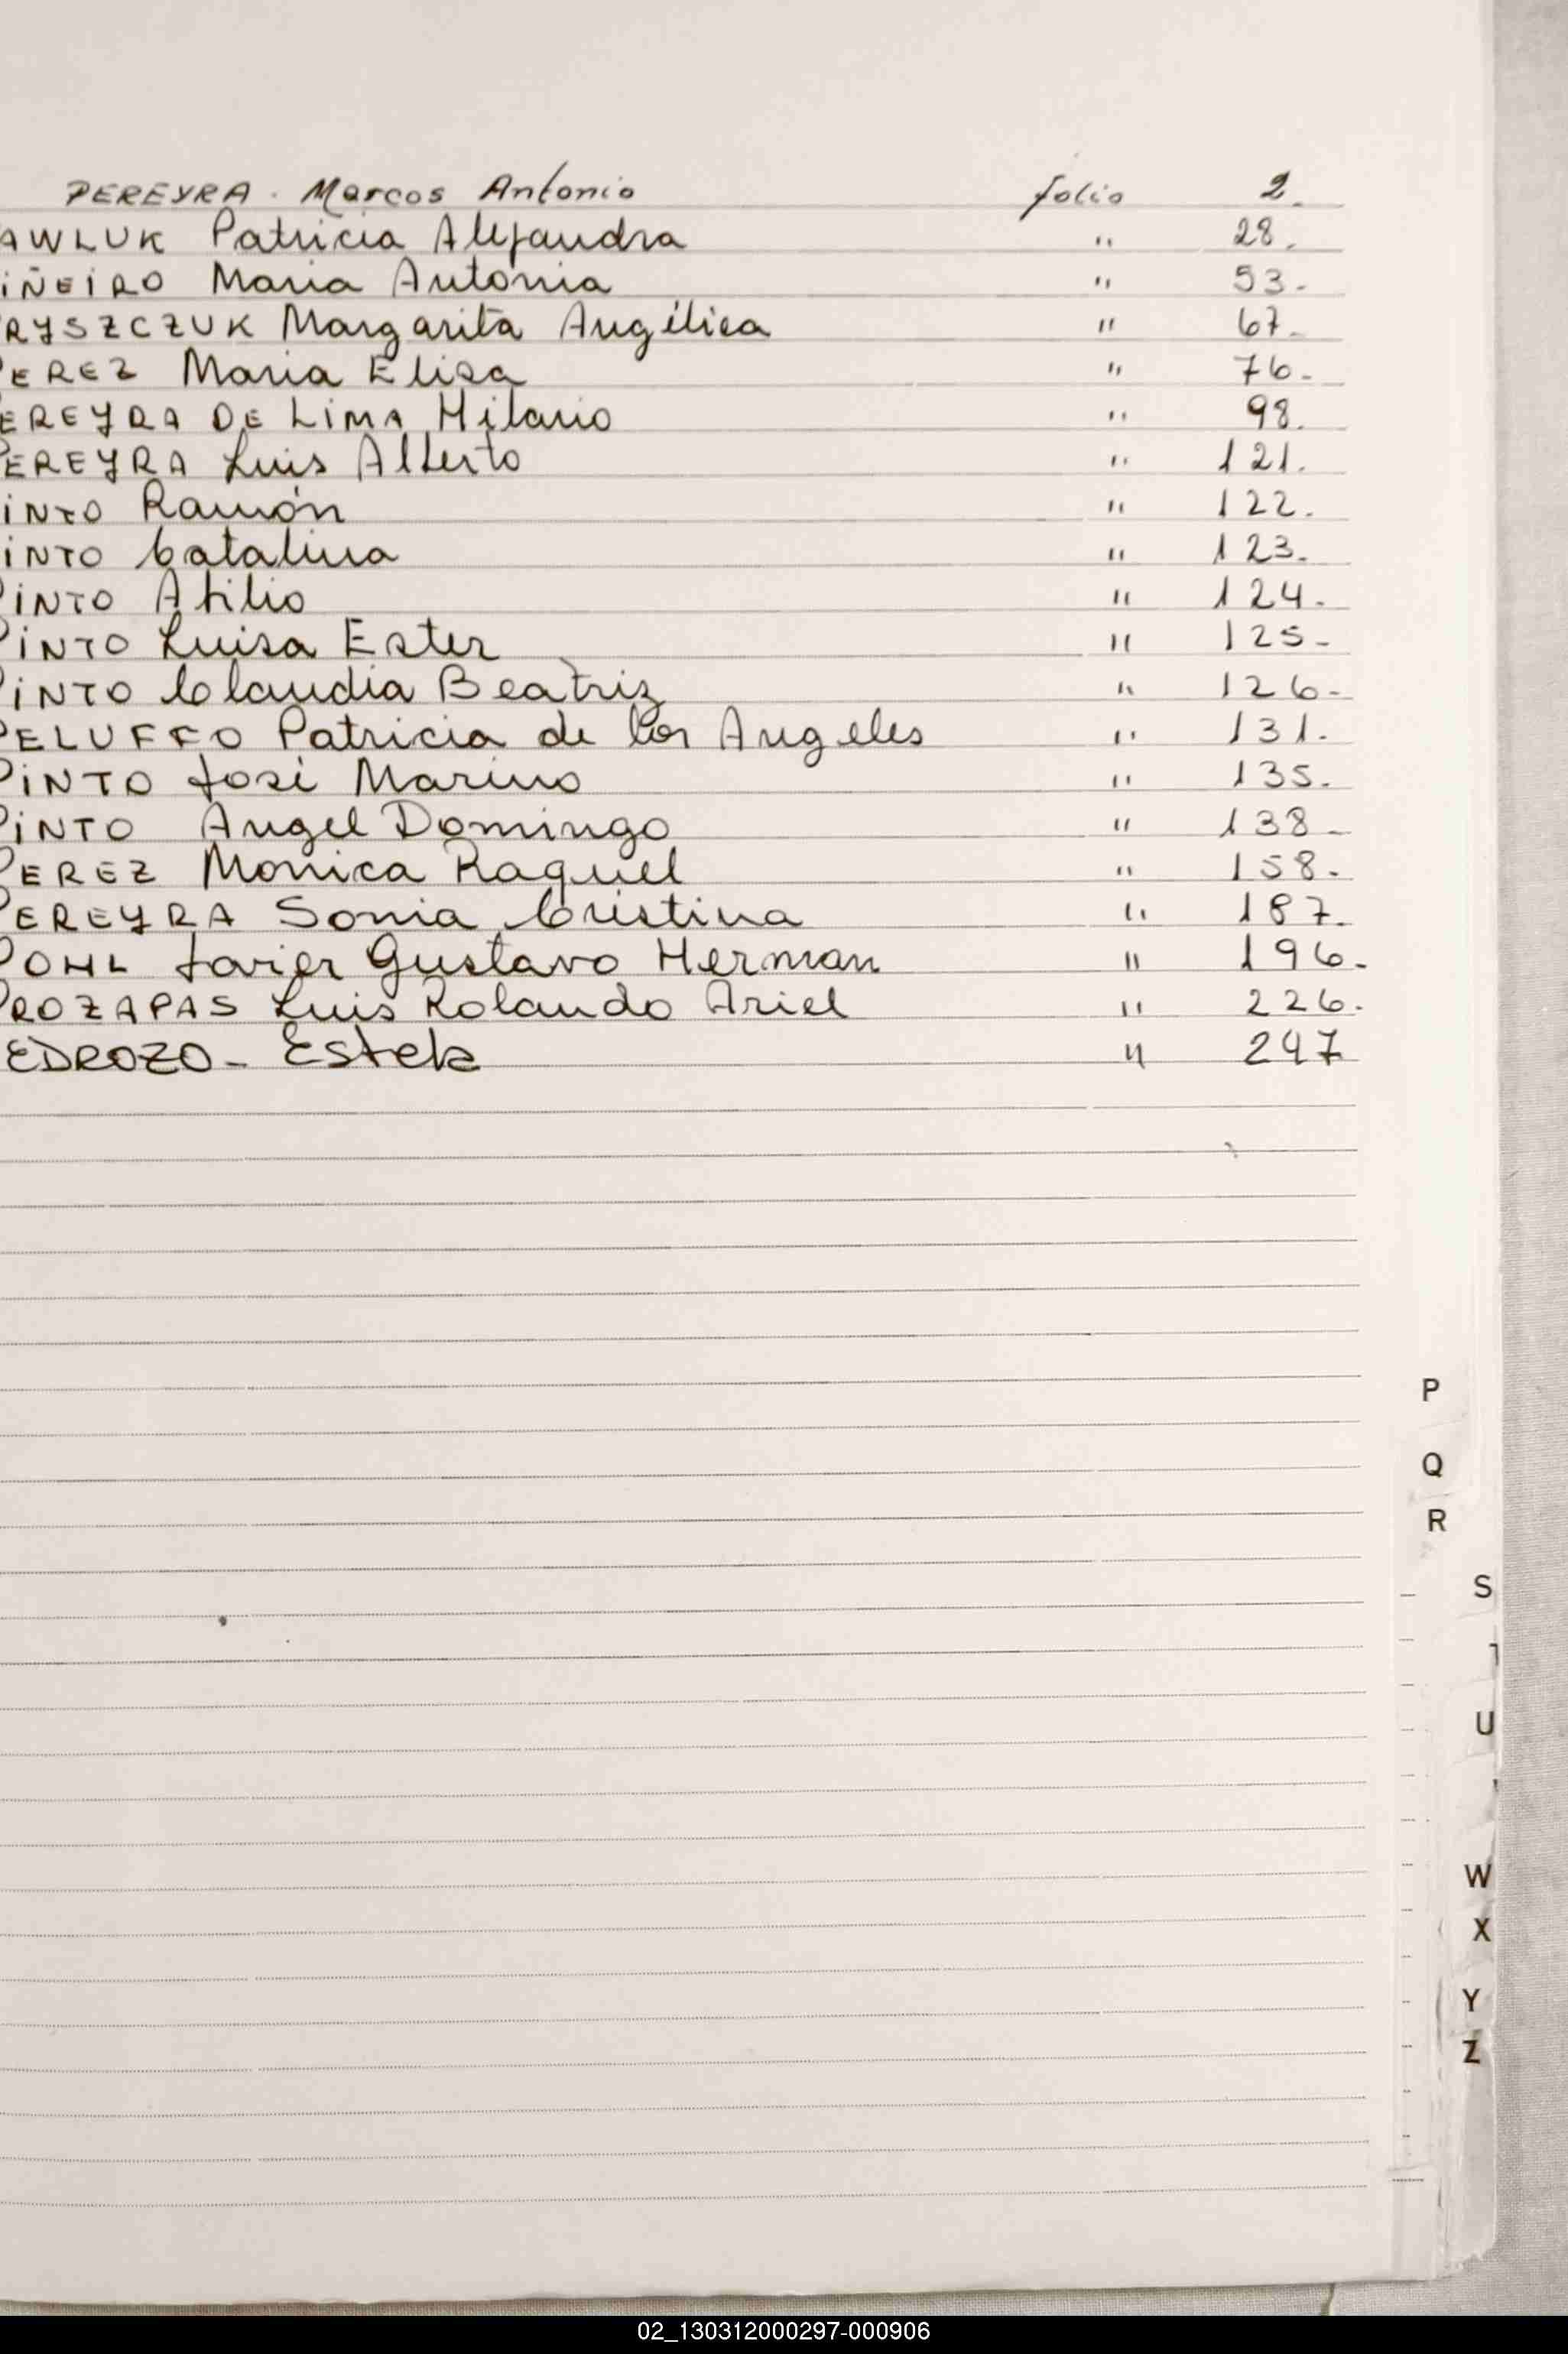 PEREYRA. Marcos Antonio folio 2.
AWLUK Patricia Alejandra " 28.
IÑEIRO Maria Antonia " 53.
RYSZCZUK Margarita Angélica " 67.
PEREZ Maria Elisa " 76.
EREYRA DE LIMA Hilario " 98.
PEREYRA Luis Alberto " 121.
INTO Ramón " 122.
INTO Catalina " 123.
PINTO Atilio " 124.
PINTO Luisa Ester " 125.
PINTO Claudia Beatriz " 126.
PELUFFO Patricia de los Angeles " 131.
PINTO José Marino " 135.
PINTO Angel Domingo " 138.
PEREZ Monica Raquel " 158.
PEREYRA Sonia Cristina " 187.
POHL Javier Gustavo Herman " 196.
PROZAPAS Luis Rolando Ariel " 226.
EDROZO - Estela " 247
P
Q
R
S
T
U
W
X
Y
Z
02_130312000297-000906